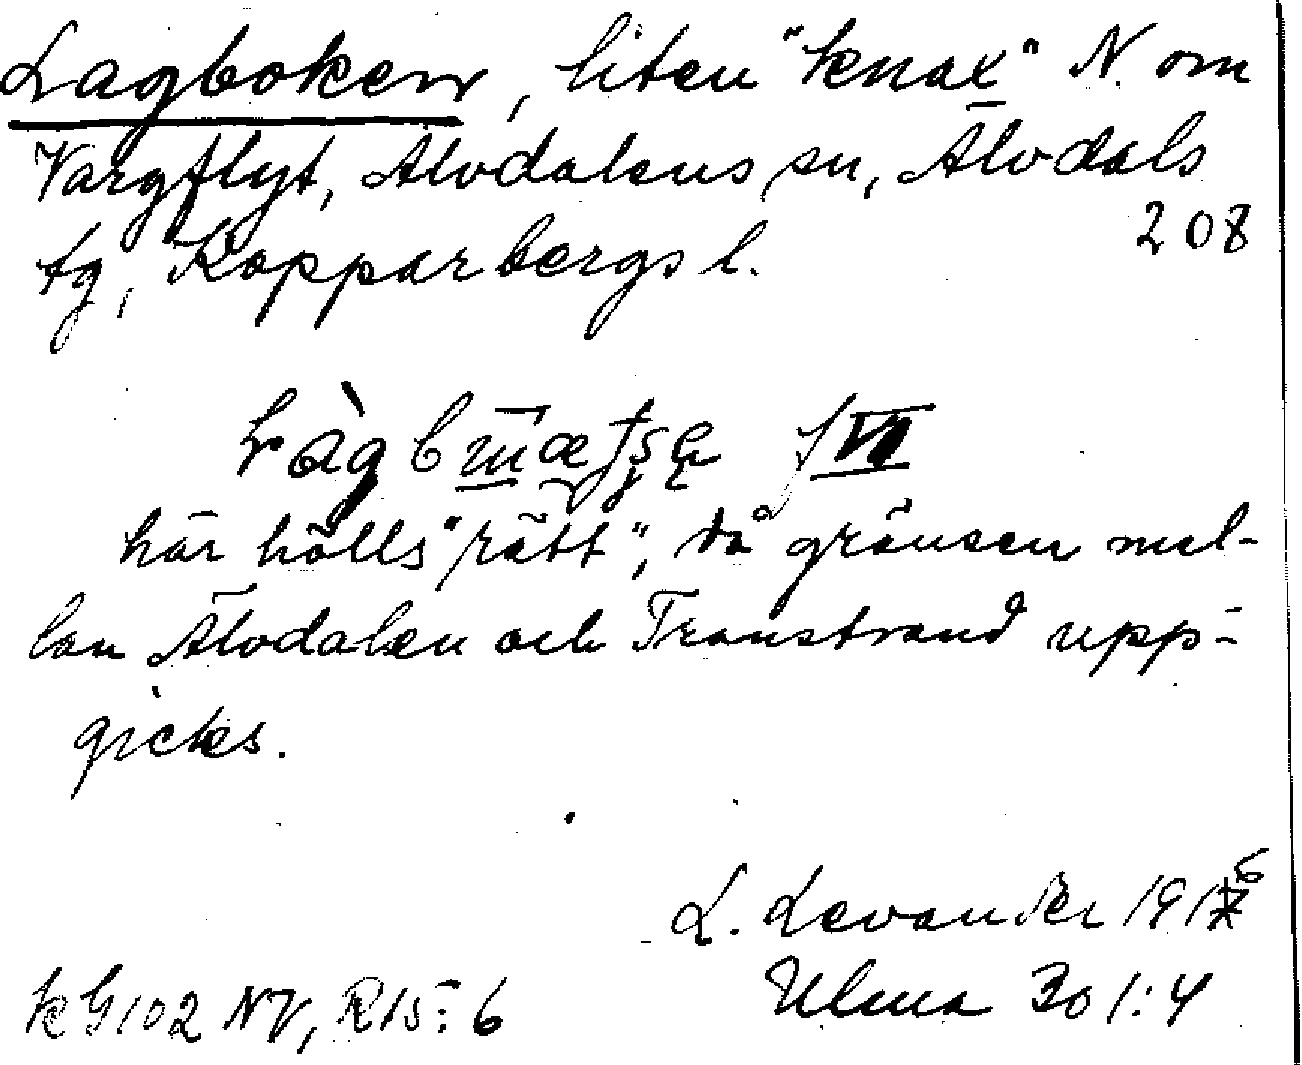 Lagboken, liten "knax" N. om
Vargflyt, Älvdalens sn, Älvdals
tg, Kopparbergs l.
208
här hölls "rätt", då gränsen mel-
lan Älvdalen och Transtrand upp-
gicks.
L. Levander 1916
Ulma 301:4
KG102 NV, R15:6